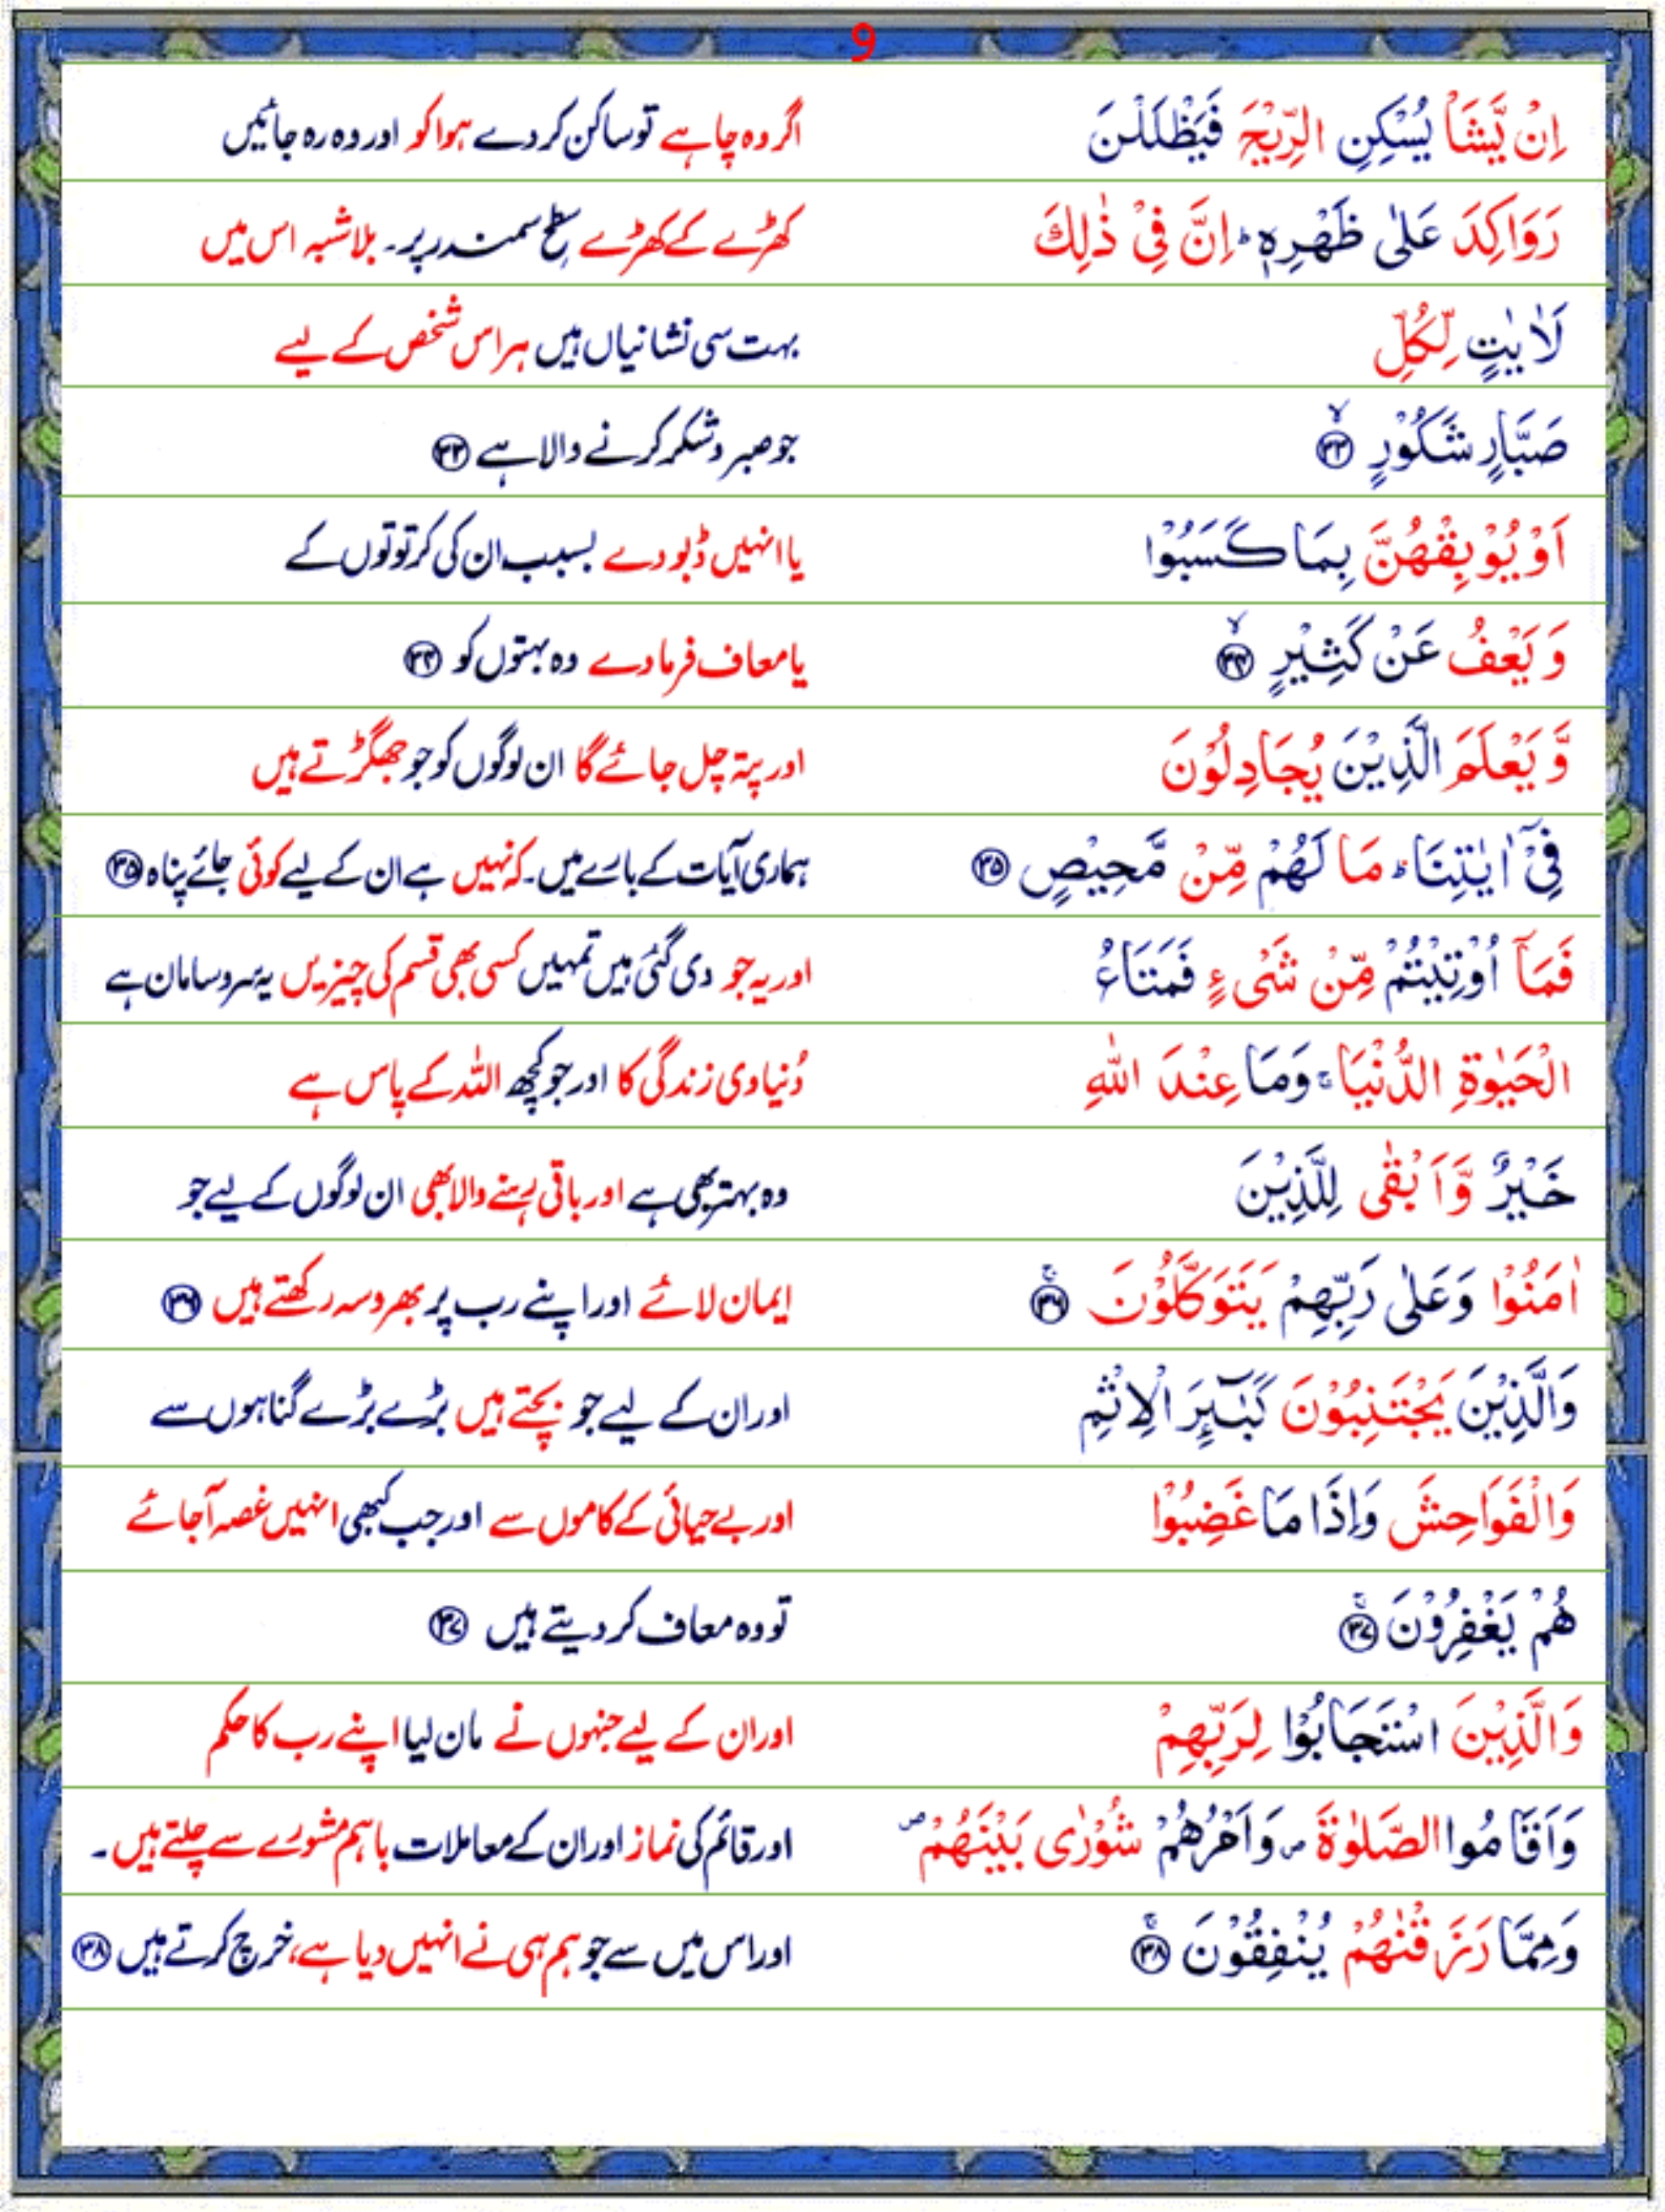 9
اِنْ يَّشَاْ يُسْكِنِ الرِّيْحَ فَيَظْلَلْنَ اگر وہ چاہے تو ساکن کردے ہوا کو اور وہ رہ جائیں
رَوَاكِدَ عَلٰى ظَهْرِهٖ ؕ اِنَّ فِيْ ذٰلِكَ کھڑے کے کھڑے سطح سمندر پر۔ بلاشبہ اس میں
لَاٰيٰتٍ لِّكُلِّ بہت سی نشانیاں ہیں ہر اس شخص کے لیے
صَبَّارٍ شَكُوْرٍ ۙ‏﴿۳۳﴾ جو صبر و شکر کرنے والا ہے ﴿۳۳﴾
اَوْ يُوْبِقْهُنَّ بِمَا كَسَبُوْا یا انہیں ڈبودے بسبب ان کی کرتوتوں کے
وَ يَعْفُ عَنْ كَثِيْرٍ ۙ﴿۳۴﴾ یا معاف فرما دے وہ بہتوں کو ﴿۳۴﴾
وَّ يَعْلَمَ الَّذِيْنَ يُجَادِلُوْنَ اور پتہ چل جائے گا ان لوگوں کو جو جھگڑتے ہیں
فِيْۤ اٰيٰتِنَا ؕ مَا لَهُمْ مِّنْ مَّحِيْصٍ ﴿۳۵﴾ ہماری آیات کے بارے میں۔ کہ نہیں ہے ان کے لیے کوئی جائے پناہ ﴿۳۵﴾
فَمَاۤ اُوْتِيْتُمْ مِّنْ شَيْءٍ فَمَتَاعُ اور یہ جو دی گئی ہیں تمہیں کسی بھی قسم کی چیزیں یہ سروسامان ہے
الْحَيٰوةِ الدُّنْيَا ۚ وَمَا عِنْدَ اللّٰهِ دُنیاوی زندگی کا اور جو کچھ اللہ کے پاس ہے
خَيْرٌ وَّاَبْقٰى لِلَّذِيْنَ وہ بہتر بھی ہے اور باقی رہنے والا بھی ان لوگوں کے لیے جو
اٰمَنُوْا وَعَلٰى رَبِّهِمْ يَتَوَكَّلُوْنَ ۚ﴿۳۶﴾ ایمان لائے اور اپنے رب پر بھروسہ رکھتے ہیں ﴿۳۶﴾
وَالَّذِيْنَ يَجْتَنِبُوْنَ كَبٰٓئِرَ الْاِثْمِ اور ان کے لیے جو بچتے ہیں بڑے بڑے گناہوں سے
وَالْفَوَاحِشَ وَاِذَا مَا غَضِبُوْا اور بے حیائی کے کاموں سے اور جب کبھی انہیں غصہ آجائے
هُمْ يَغْفِرُوْنَ ۚ﴿۳۷﴾ تو وہ معاف کر دیتے ہیں ﴿۳۷﴾
وَالَّذِيْنَ اسْتَجَابُوْا لِرَبِّهِمْ اور ان کے لیے جنہوں نے مان لیا اپنے رب کا حکم
وَاَقَامُوا الصَّلٰوةَ ۪ وَاَمْرُهُمْ شُوْرٰى بَيْنَهُمْ ۪ اور قائم کی نماز اور ان کے معاملات باہم مشورے سے چلتے ہیں۔
وَمِمَّا رَزَقْنٰهُمْ يُنْفِقُوْنَ ۚ﴿۳۸﴾ اور اس میں سے جو ہم ہی نے انہیں دیا ہے، خرچ کرتے ہیں ﴿۳۸﴾